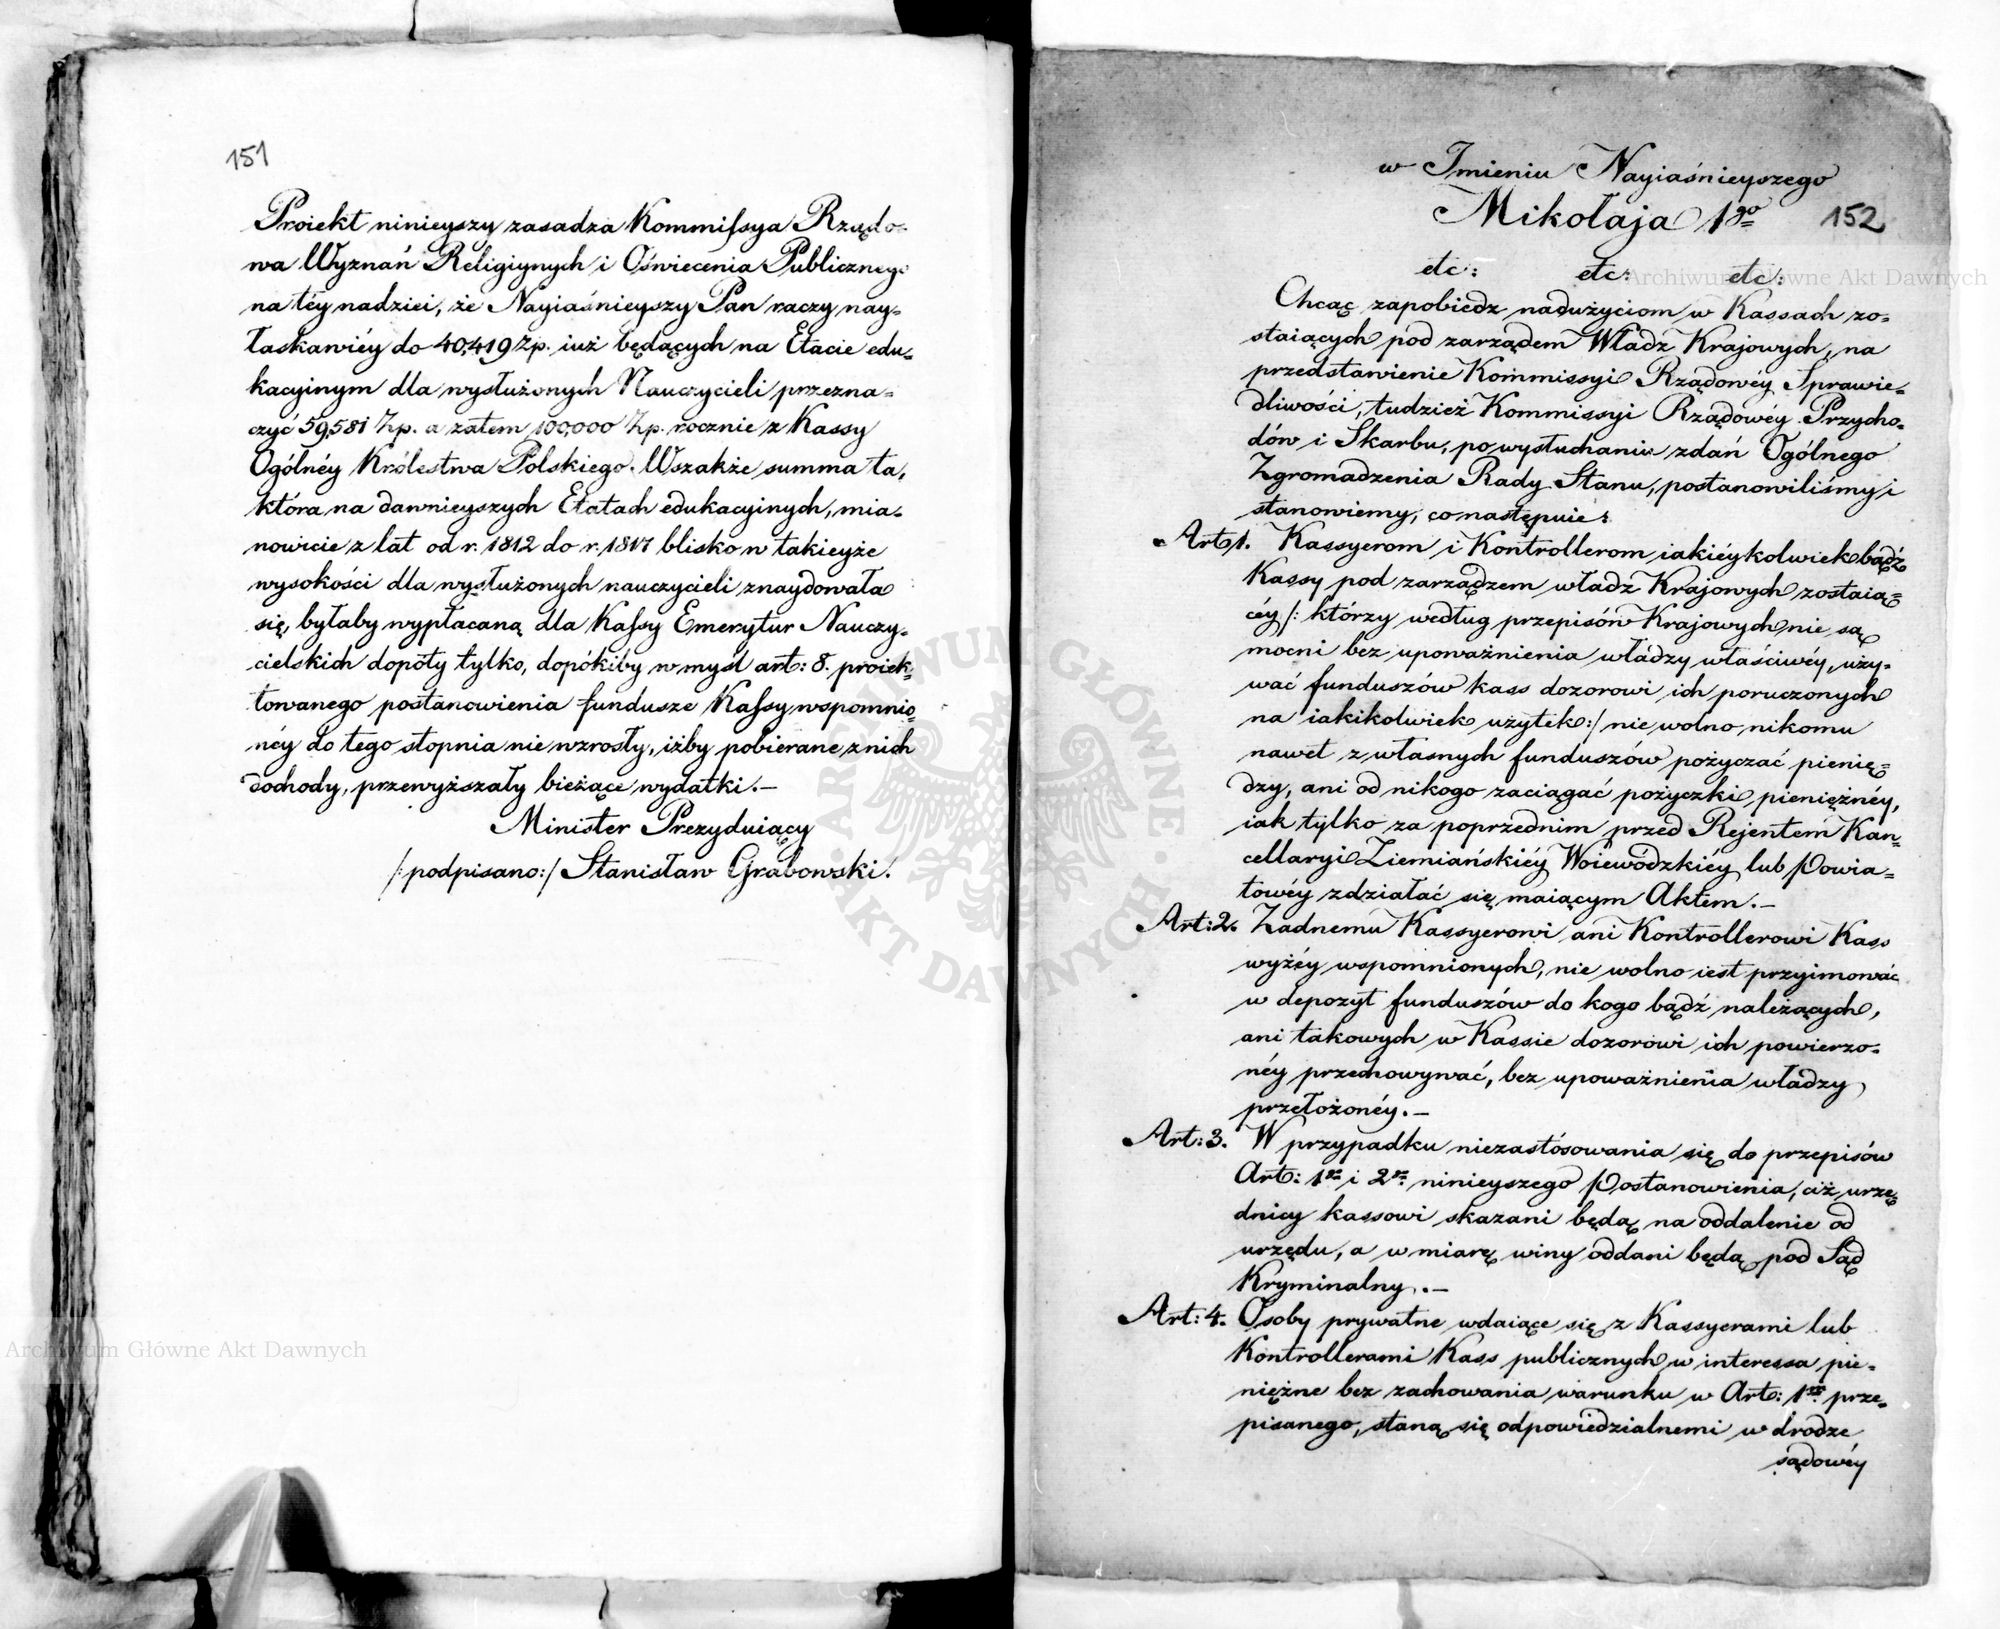 151
Proiekt ninieyszy zasadza Kommissya Rządo-
wa Wyznań Religiynych i Oświecenia Publicznego
na téy nadziei, że Nayiaśnieyszy Pan raczy nay-
łaskawiéy do 40,419 Zp. iuż będących na Etacie edu-
kacyinym dla wysłużonych Nauczycieli przezna-
czyć 59,581 Zp. a zatem 100,000 Zp. rocznie z Kassy
Ogólnéy Królestwa Polskiego. Wszakże summa ta,
która na dawnieyszych Etatach edukacyinych, mia-
nowicie z lat od r. 1812 do r. 1817 blisko w takieyże
wysokości dla wysłużonych nauczycieli znaydowała
się, byłaby wypłacaną dla Kassy Emerytur Nauczy-
cielskich dopóty tylko, dopókiby w myśl art: 8. proiek-
towanego postanowienia fundusze Kassy wspomnio-
néy do tego stopnia nie wzrosły, iżby pobierane z nich
dochody, przewyższały bieżące wydatki.—
Minister Prezyduiący
/:podpisano:/ Stanisław Grabowski.
w Imieniu Nayiaśnieyszego
Mikołaja 1go
152
etc: etc: etc:
Chcąc zapobiedz nadużyciom w Kassach zo-
staiących pod zarządem Władz Krajowych, na
przedstawienie Kommissyi Rządowéy Sprawie-
dliwości, tudzież Kommissyi Rządowéy Przycho-
dów i Skarbu, po wysłuchaniu zdań Ogólnego
Zgromadzenia Rady Stanu, postanowiliśmy i
stanowiemy, co następuie:
Art 1. Kassyerom i Kontrollerom iakiéykolwiek bądź
Kassy pod zarządzem władz Krajowych zostaią-
céy /: którzy według przepisów Krajowych nie są
mocni bez upoważnienia władzy właściwéy, uży-
wać funduszów kass dozorowi ich poruczonych
na iakikolwiek użytek :/ nie wolno nikomu
nawet z własnych funduszów pożyczać pienię-
dzy, ani od nikogo zaciągać pożyczki pieniężnéy,
iak tylko za poprzednim przed Rejentem Kan-
cellaryi Ziemiańskiéy Woiewódzkiéy lub Powia-
towéy zdziałać się maiącym Aktem.—
Art: 2. Żadnemu Kassyerowi ani Kontrollerowi Kass
wyżéy wspomnionych, nie wolno iest przyimować
w depozyt funduszów do kogo bądź należących,
ani takowych w Kassie dozorowi ich powierzo-
néy przechowywać, bez upoważnienia władzy
przełożonéy.—
Art: 3. W przypadku niezastósowania się do przepisów
Art: 1go i 2go ninieyszego Postanowienia, ciż urzę-
dnicy kassowi skazani będą na oddalenie od
urzędu, a w miarę winy oddani będą pod Sąd
Kryminalny.—
Art: 4. Osoby prywatne wdaiące się z Kassyerami lub
Kontrollerami Kass publicznych w interessa pie-
niężne bez zachowania warunku w Art: 1ym prze-
pisanego, staną się odpowiedzialnemi w drodze
sądowéy
Archiwum Główne Akt Dawnych
Archiwum Główne Akt Dawnych
ARCHIWUM GŁÓWNE · AKT DAWNYCH ·